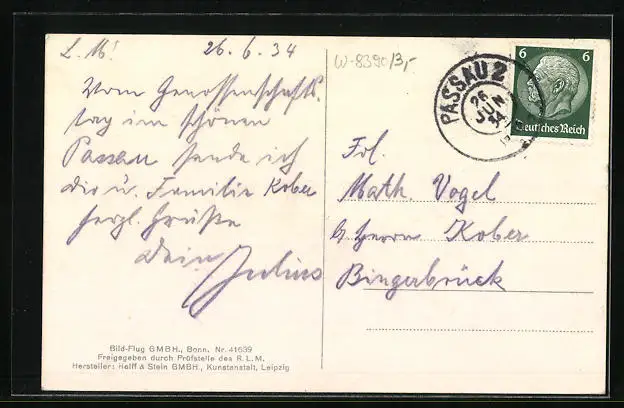 L. M! 26.6.34
Vom Genossenschafts-
tag im schönen
Passau sende ich
Dir u. Familie Kober
herzl. Grüße
Dein Julius
Bild-Flug GMBH., Bonn. Nr. 41639
Freigegeben durch Prüfstelle des R. L. M.
Hersteller: Helff & Stein GMBH., Kunstanstalt, Leipzig
W-8390/3,-
PASSAU 2
26
JUN
34
6 6
Deutsches Reich
Frl.
Math. Vogel
b. Herrn Kober
Bingerbrück